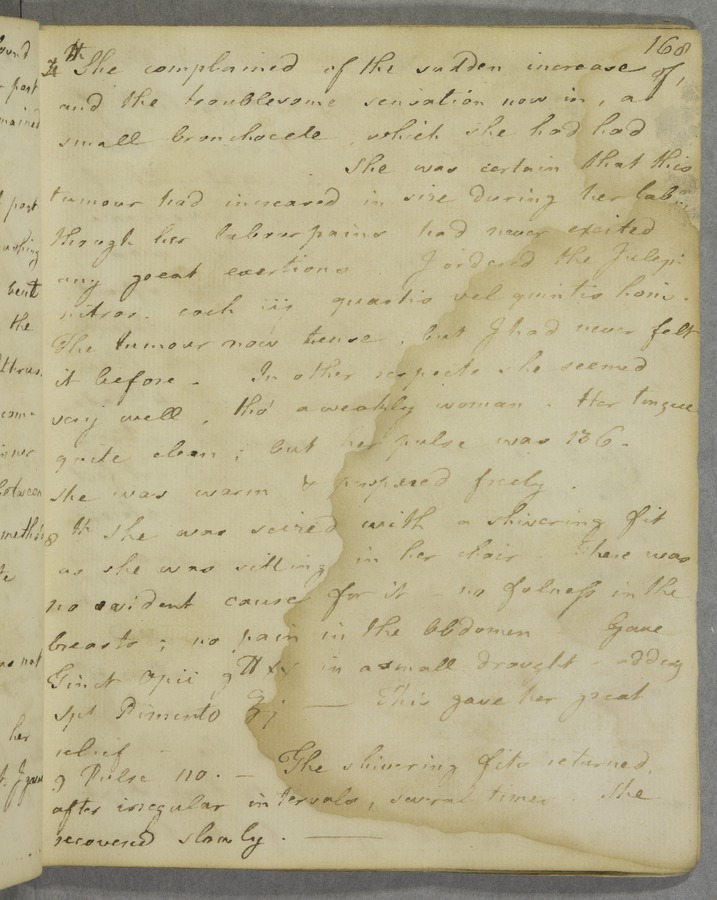 168
4th She complained of the sudden increase of,
and the troublesome sensation now in, a
small bronchocele, which she had had
She was certain that this
tumour had increased in size during her lab
though her labour pains had never excited
any great exertions I ordered the Julep:
nitros. coch iij quartis vel quintis horis.
The tumour now tense, but I had never felt
it before - In other respects she seemed
very well, tho' a weakly woman. Her tongue
quite clean; but her pulse was 136.
She was warm & perspired freely.
8th She was seized with a shivering fit
as she was sitting in her chair - There was
no evident cause for it - no fulness in the
breasts; no pain in the abdomen - Gave
Tinct Opii gtt xx in a small draught - adding
Spt Pimento ʒj — This gave her great
relief -
9 Pulse 110. - The shivering fits returned,
after irregular intervals, several times. She
recovered slowly. —